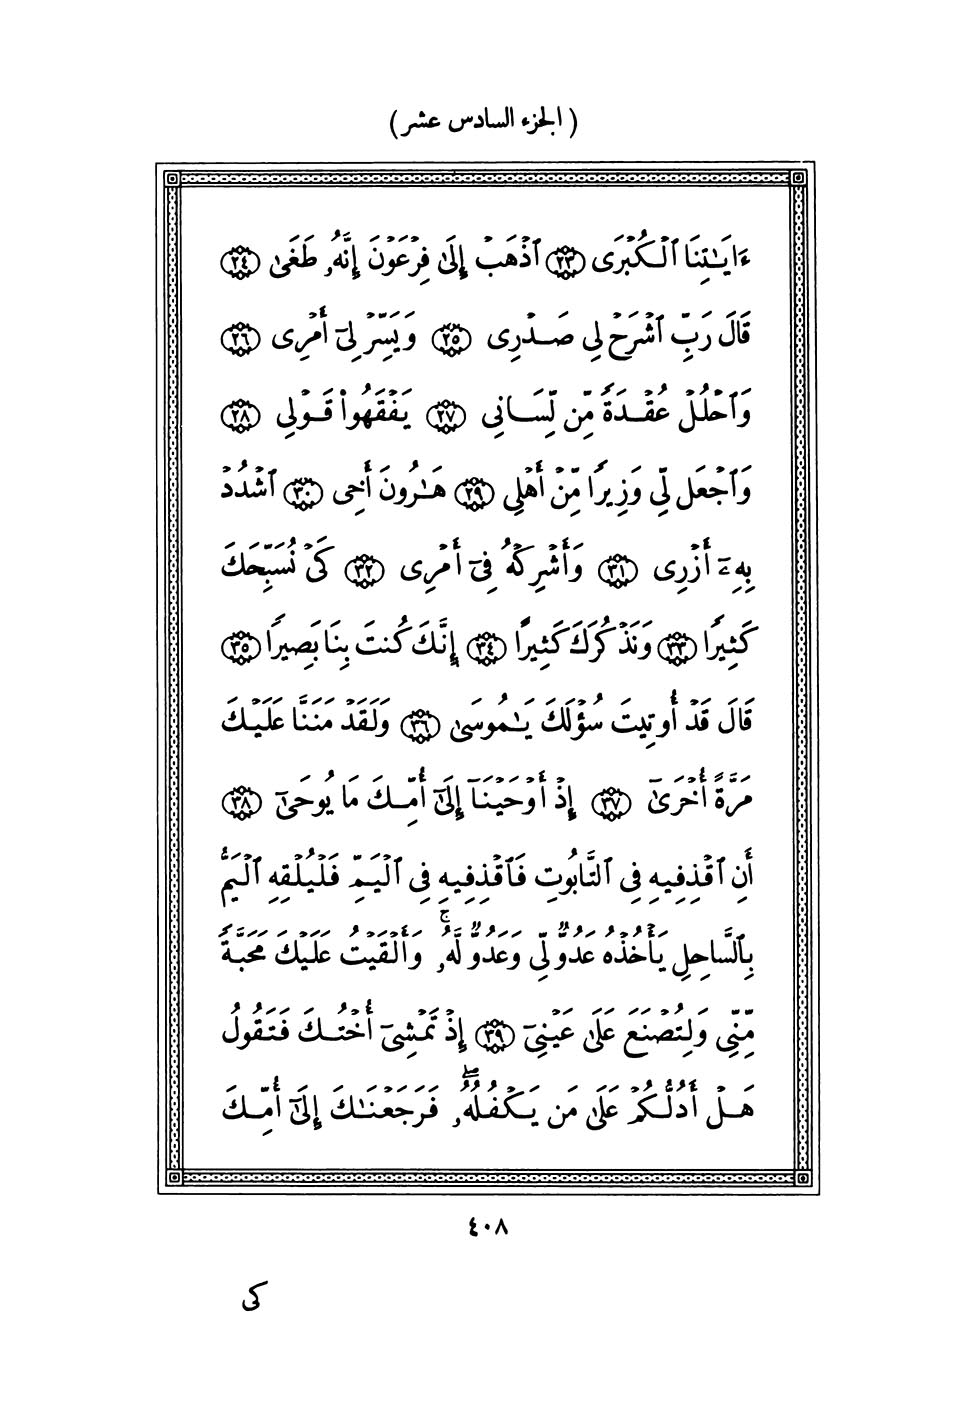 ( الجزء السادس عشر )
ءَايَـٰتِنَا ٱلْكُبْرَى ٢٣ ٱذْهَبْ إِلَىٰ فِرْعَوْنَ إِنَّهُۥ طَغَىٰ ٢٤
قَالَ رَبِّ ٱشْرَحْ لِى صَدْرِى ٢٥ وَيَسِّرْ لِىٓ أَمْرِى ٢٦
وَٱحْلُلْ عُقْدَةً مِّن لِّسَانِى ٢٧ يَفْقَهُوا۟ قَوْلِى ٢٨
وَٱجْعَل لِّى وَزِيرًا مِّنْ أَهْلِى ٢٩ هَـٰرُونَ أَخِى ٣٠ ٱشْدُدْ
بِهِۦٓ أَزْرِى ٣١ وَأَشْرِكْهُ فِىٓ أَمْرِى ٣٢ كَىْ نُسَبِّحَكَ
كَثِيرًا ٣٣ وَنَذْكُرَكَ كَثِيرًا ٣٤ إِنَّكَ كُنتَ بِنَا بَصِيرًا ٣٥
قَالَ قَدْ أُوتِيتَ سُؤْلَكَ يَـٰمُوسَىٰ ٣٦ وَلَقَدْ مَنَنَّا عَلَيْكَ
مَرَّةً أُخْرَىٰٓ ٣٧ إِذْ أَوْحَيْنَآ إِلَىٰٓ أُمِّكَ مَا يُوحَىٰٓ ٣٨
أَنِ ٱقْذِفِيهِ فِى ٱلتَّابُوتِ فَٱقْذِفِيهِ فِى ٱلْيَمِّ فَلْيُلْقِهِ ٱلْيَمُّ
بِٱلسَّاحِلِ يَأْخُذْهُ عَدُوٌّ لِّى وَعَدُوٌّ لَّهُۥ ۚ وَأَلْقَيْتُ عَلَيْكَ مَحَبَّةً
مِّنِّى وَلِتُصْنَعَ عَلَىٰ عَيْنِىٓ ٣٩ إِذْ تَمْشِىٓ أُخْتُكَ فَتَقُولُ
هَلْ أَدُلُّكُمْ عَلَىٰ مَن يَكْفُلُهُۥ ۖ فَرَجَعْنَـٰكَ إِلَىٰٓ أُمِّكَ
٤٠٨
كى